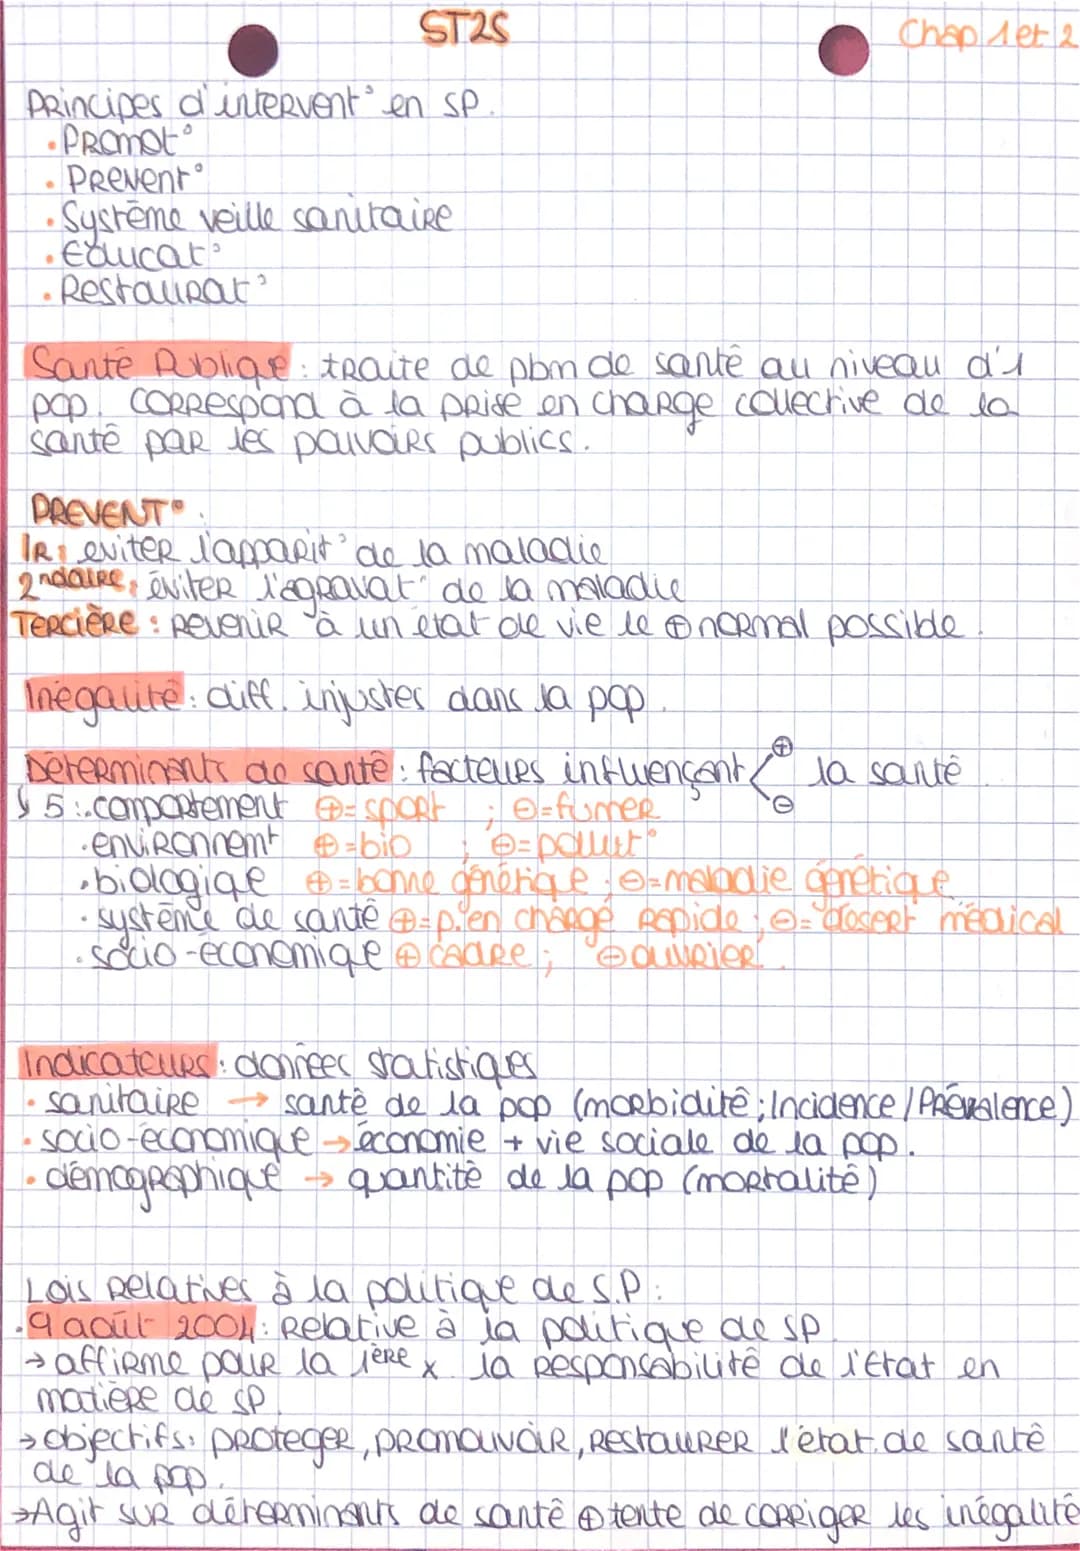 ST2S
Chap 1 et 2
Principes d'intervent° en SP.
• Promot°
• Prevent°
• Système veille sanitaire
• Educat°
• Restaurat°
Santé Publique : traite de pbm de santé au niveau d'1
pop. Correspond à la prise en charge collective de la
santé par les pouvoirs publics.
PREVENT° :
1R : eviter l'apparit° de la maladie
2ndaire : éviter l'agravat° de la maladie
Tercière : revenir à un état de vie le ⊕ normal possible.
Inégalité : diff. injustes dans la pop.
Déterminants de santé : facteurs influençant < ⊕ ⊖ la santé
↳ 5 : • comportement ⊕ = sport ; ⊖ = fumer
• environnemt ⊕ = bio ; ⊖ = pollut°
• biologique ⊕ = bonne génétique ; ⊖ = maladie génétique
• système de santé ⊕ = p. en charge rapide ; ⊖ = désert médical
• socio-économique ⊕ cadre ; ⊖ ouvrier.
Indicateurs : données statistiques
• sanitaire → santé de la pop (morbidité ; Incidence / Prévalence)
• socio-économique → économie + vie sociale de la pop.
• démographique → quantité de la pop (mortalité)
Lois relatives à la politique de S.P :
• 9 août 2004 : Relative à la politique de SP.
→ affirme pour la 1ère x la responsabilité de l'Etat en
matière de SP.
→ objectifs : proteger, promouvoir, restaurer l'état de santé
de la pop.
→ Agit sur déterminants de santé ⊕ tente de corriger les inégalité